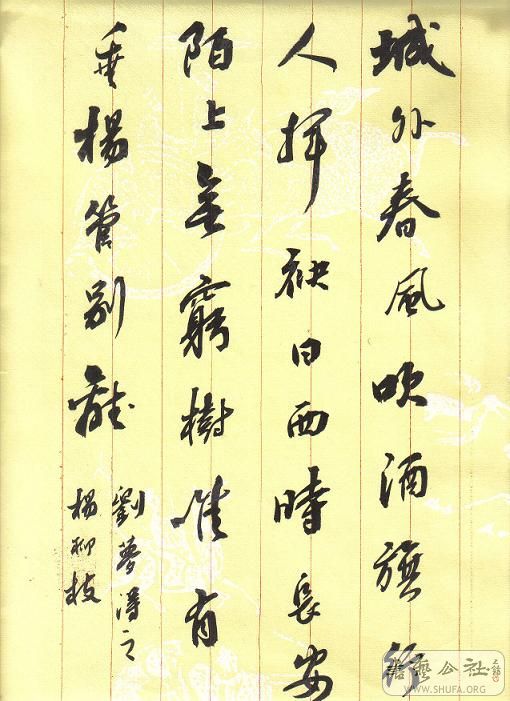 城外春風吹酒旗行
人揮袂日西時長安
陌上無窮樹唯有
垂楊管別離
劉夢得之
楊柳枝
書藝公社
WWW.SHUFA.ORG